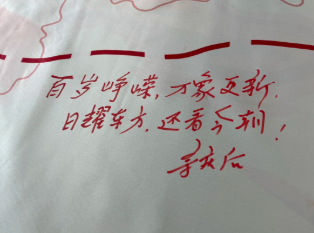 百岁峥嵘,万象更新.
日耀东方.还看今朝!